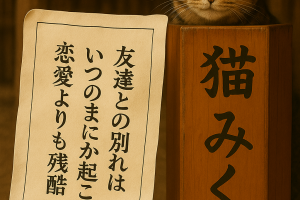 友達との別れは
いつのまにか起こ
恋愛よりも残酷
猫みく